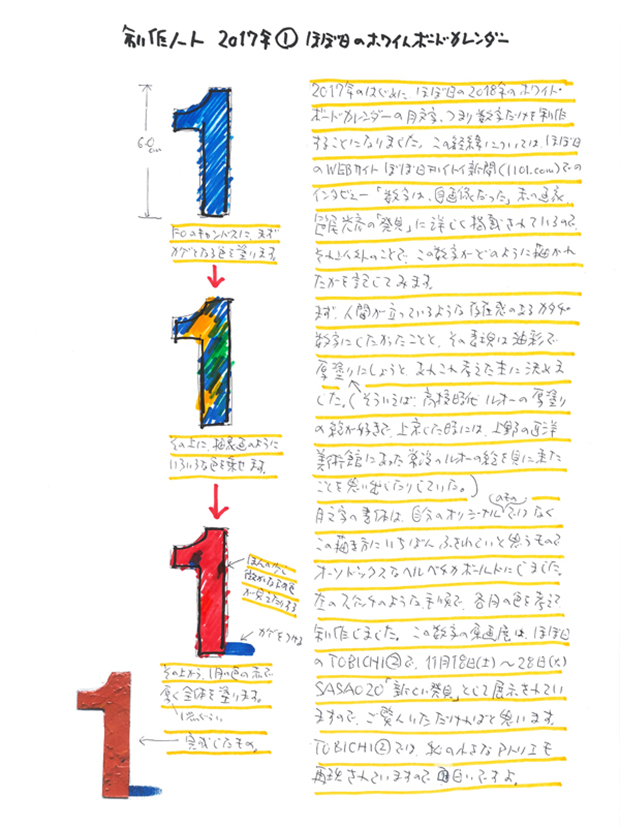 制作ノート 2017年① ほぼ日のホワイトボードカレンダー
6.0cm
F0のキャンバスに、まず
カゲとなる色を塗ります。
その上に、抽象画のように
いろいろな色を乗せます。
ほんの少し
他の色
が見えたりする
カゲをつける
その上から、1月の色の赤で
厚く全体を塗ります。
完成したもの。
2017年のはじめに、ほぼ日の2018年のホワイト
ボードカレンダーの月文字、つまり数字だけを制作
することになりました。この経緯については、ほぼ日
のWEBサイトほぼ日刊イトイ新聞(1101.com)での
インタビュー「数字は、自画像だった」
の「発見」に詳しく掲載されているので、
この数字がどのように描かれ
たかを記してみます。
まず、人間が立っているような存在感のあるカタチの
数字にしたかったことと、その表現は油彩で
厚塗りにしようと、あれこれ考えた末に決めま
した。(そういえば、高校時代ルオーの厚塗り
の絵が好きで、上京した時には、上野の西洋
美術館にあった常設のルオーの絵を見に来た
ことを思い出したりしていた。)
月文字の書体は、自分のオリジナルのものでなく
この描き方にいちばんふさわしいと思うもので
オーソドックスなヘルベチカボールドにしました。
左のスケッチのような手順で、各月の色を考えて
制作しました。この数字の原画展は、ほぼ日
のTOBICHI②で、11月18日(土)〜28日(火)
SASAO20「新しい発見」として展示されてい
ますので、ご覧いただければと思います。
TOBICHI②では、私の小さなアトリエも
再現されていますので面白いですよ。